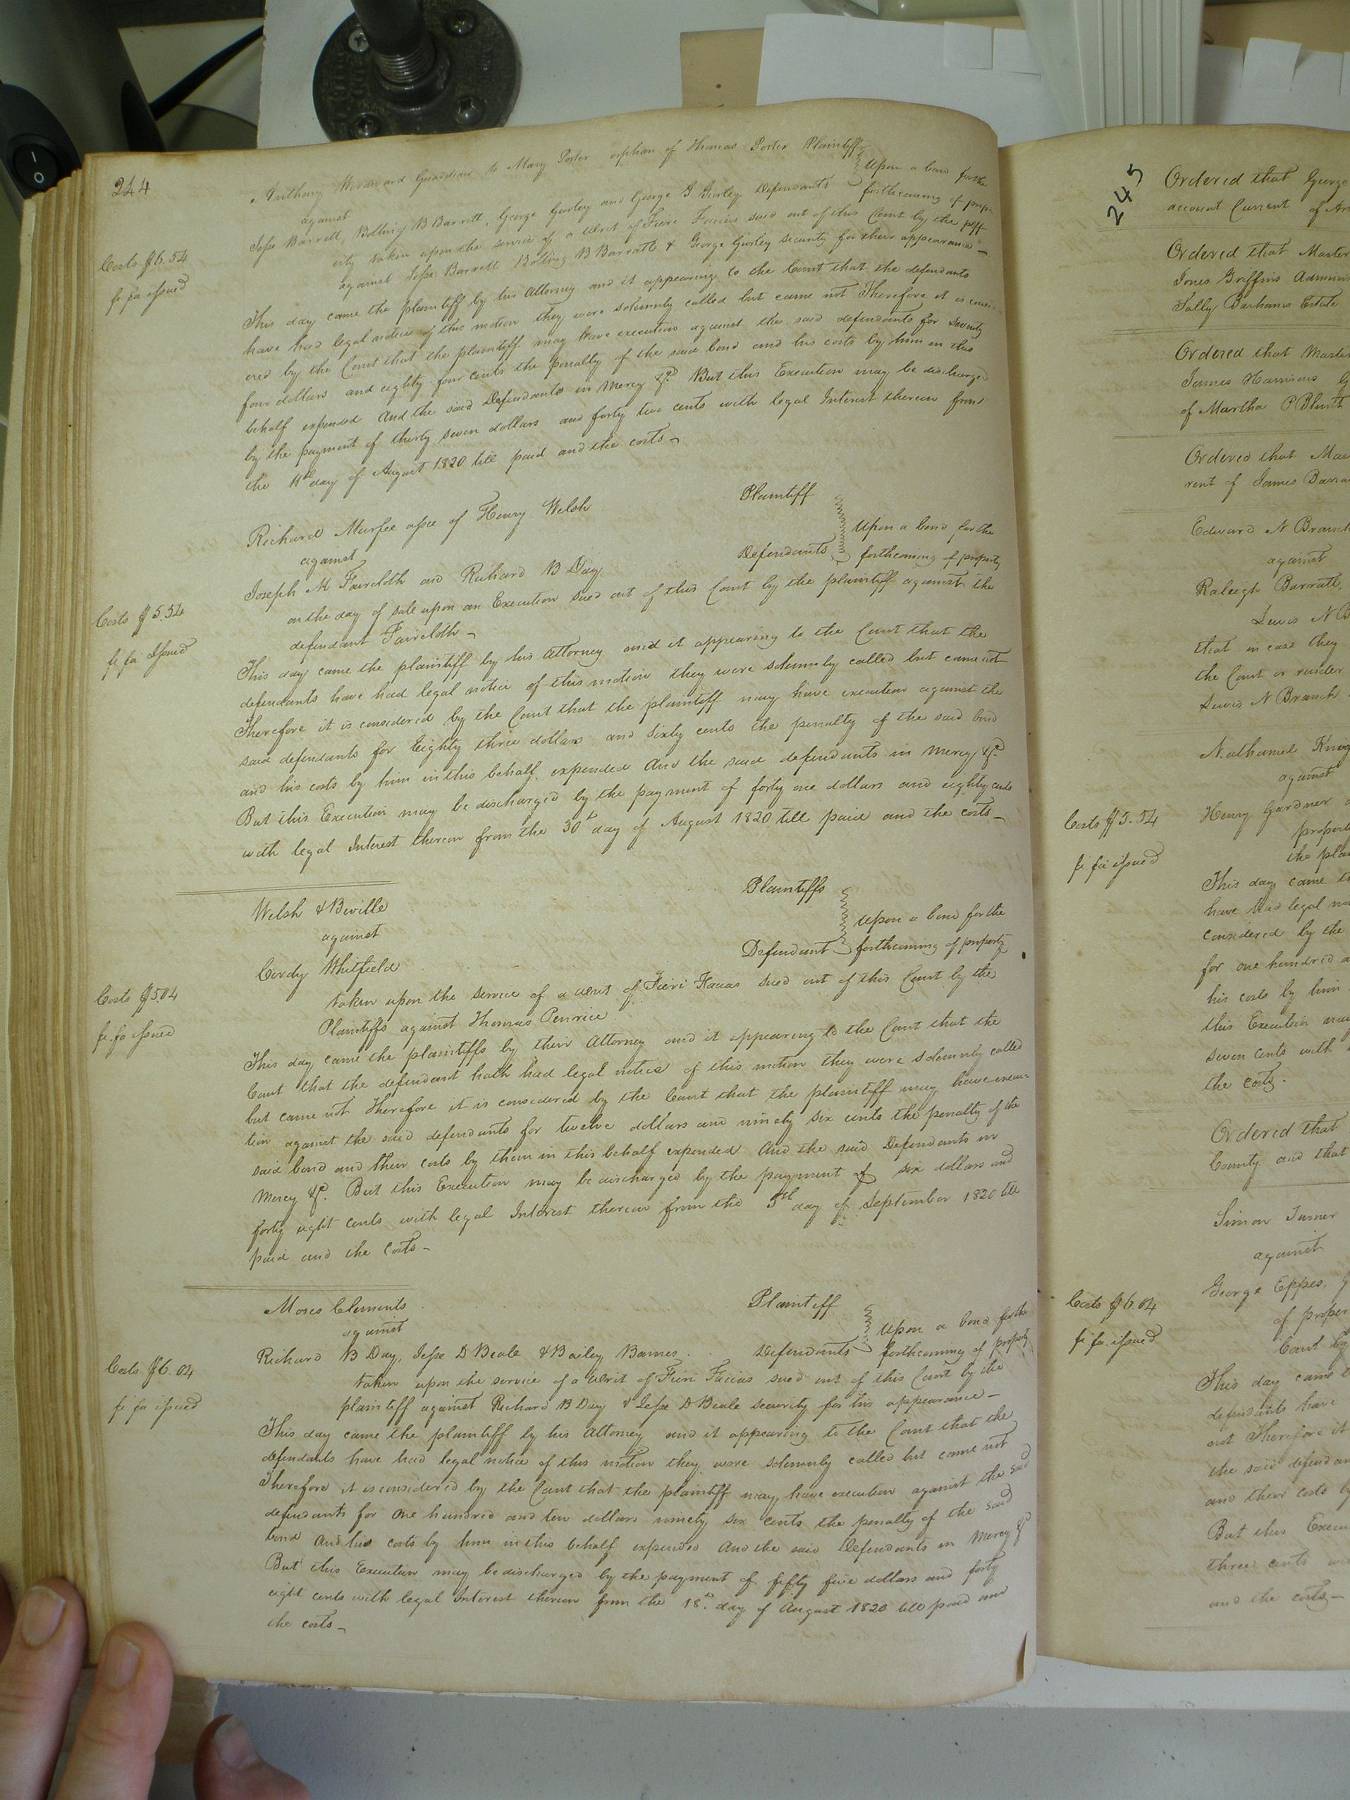 244
Anthony and Guardian to Mary Porter orphan of Thomas Porter Plaintiff
against
Upon a bond for the
Jesse Barrett, Bolling B Barrett, George Gurley and George S Gurley Defendants
forthcoming of prop
erty taken upon the service of a writ of Fieri Facias sued out of this Court by the plff
against Jesse Barrett Bolling B Barrett & George Gurley security for their appearance
Costs $6.54
fi fa issued
This day came the plaintiff by his Attorney and it appearing to the Court that the defendants
have had legal notice of this motion they were solemnly called but came not Therefore it is consi
ered by the Court that the plaintiff may have execution against the said defendants for seventy
four dollars and eighty four cents the penalty of the said bond and his costs by him in this
behalf expended And the said Defendants in Mercy &c. But this Execution may be discharged
by the payment of thirty seven dollars and forty two cents with legal Interest thereon from
the 11th day of August 1820 till paid and the costs
Richard Murfee assee of Henry Welsh Plaintiff
against
Upon a bond for the
Joseph M Faircloth and Richard B Day Defendants
forthcoming of property
on the day of sale upon an Execution sued out of this Court by the plaintiff against the
defendant Faircloth
Costs $5.54
fi fa issued
This day came the plaintiff by his Attorney and it appearing to the Court that the
defendants have had legal notice of this motion they were solemnly called but came not
Therefore it is considered by the Court that the plaintiff may have execution against the
said defendants for Eighty three dollars and Sixty cents the penalty of the said bond
and his costs by him in this behalf expended And the said defendants in Mercy &c.
But this Execution may be discharged by the payment of forty one dollars and eighty cents
with legal Interest thereon from the 30th day of August 1820 till paid and the costs
Welsh & Beville Plaintiffs
against
Upon a bond for the
Cordy Whitfield Defendant
forthcoming of property
taken upon the service of a writ of Fieri Facias sued out of this Court by the
Plaintiffs against Thomas Penrice
Costs $5.04
fi. fa issued
This day came the plaintiffs by their Attorney and it appearing to the Court that the
Court that the defendant hath had legal notice of this motion they were solemnly called
but came not Therefore it is considered by the Court that the plaintiff may have execu
tion against the said defendants for twelve dollars and ninety six cents the penalty of the
said bond and their costs by them in this behalf expended And the said Defendants in
Mercy &c. But this Execution may be discharged by the payment of six dollars and
forty eight cents with legal Interest thereon from the 5th day of September 1820 till
paid and the Costs
Moses Clements Plaintiff
against
Upon a bond for the
Richard B Day, Jesse D Beale & Bailey Barnes. Defendants
forthcoming of property
taken upon the service of a writ of Fieri Facias sued out of this Court by the
plaintiff against Richard B Day & Jesse D Beale security for his appearance
Costs $6.04
fi fa issued
This day came the plaintiff by his Attorney and it appearing to the Court that the
defendants have had legal notice of this motion they were solemnly called but came not
Therefore it is considered by the Court that the plaintiff may have execution against the said
defendants for one hundred and ten dollars ninety six cents the penalty of the said
bond and his costs by him in this behalf expended And the said Defendants in Mercy &c
But this Execution may be discharged by the payment of fifty five dollars and forty
eight cents with legal Interest thereon from the 18th day of August 1820 till paid and
the costs
245
Ordered that George
account Current of
Ordered that Master
Jones Griffins Admini
Sally Barhams Estate
Ordered that Master
James Harrisons
of Martha P Blunt
Ordered that Mas
rent of James Barra
Edward N Branch
against
Raleigh Barratt,
Lewis N B
that in case they
the Court or render
Lewis N Branch
Nathaniel Knig
against
Henry Gardner
proper
the plai
Costs $5.54
fi fa issued
This day came
have had legal no
considered by the
for one hundred
his costs by him
this Execution may
seven cents with
the costs.
Ordered that
County and that
Simon Turner
against
George Eppes,
of proper
Court by
Costs $6.04
fi fa. issued
This day came
defendants have
not Therefore it
the said defendan
and their costs by
But this Execu
three cents
and the costs